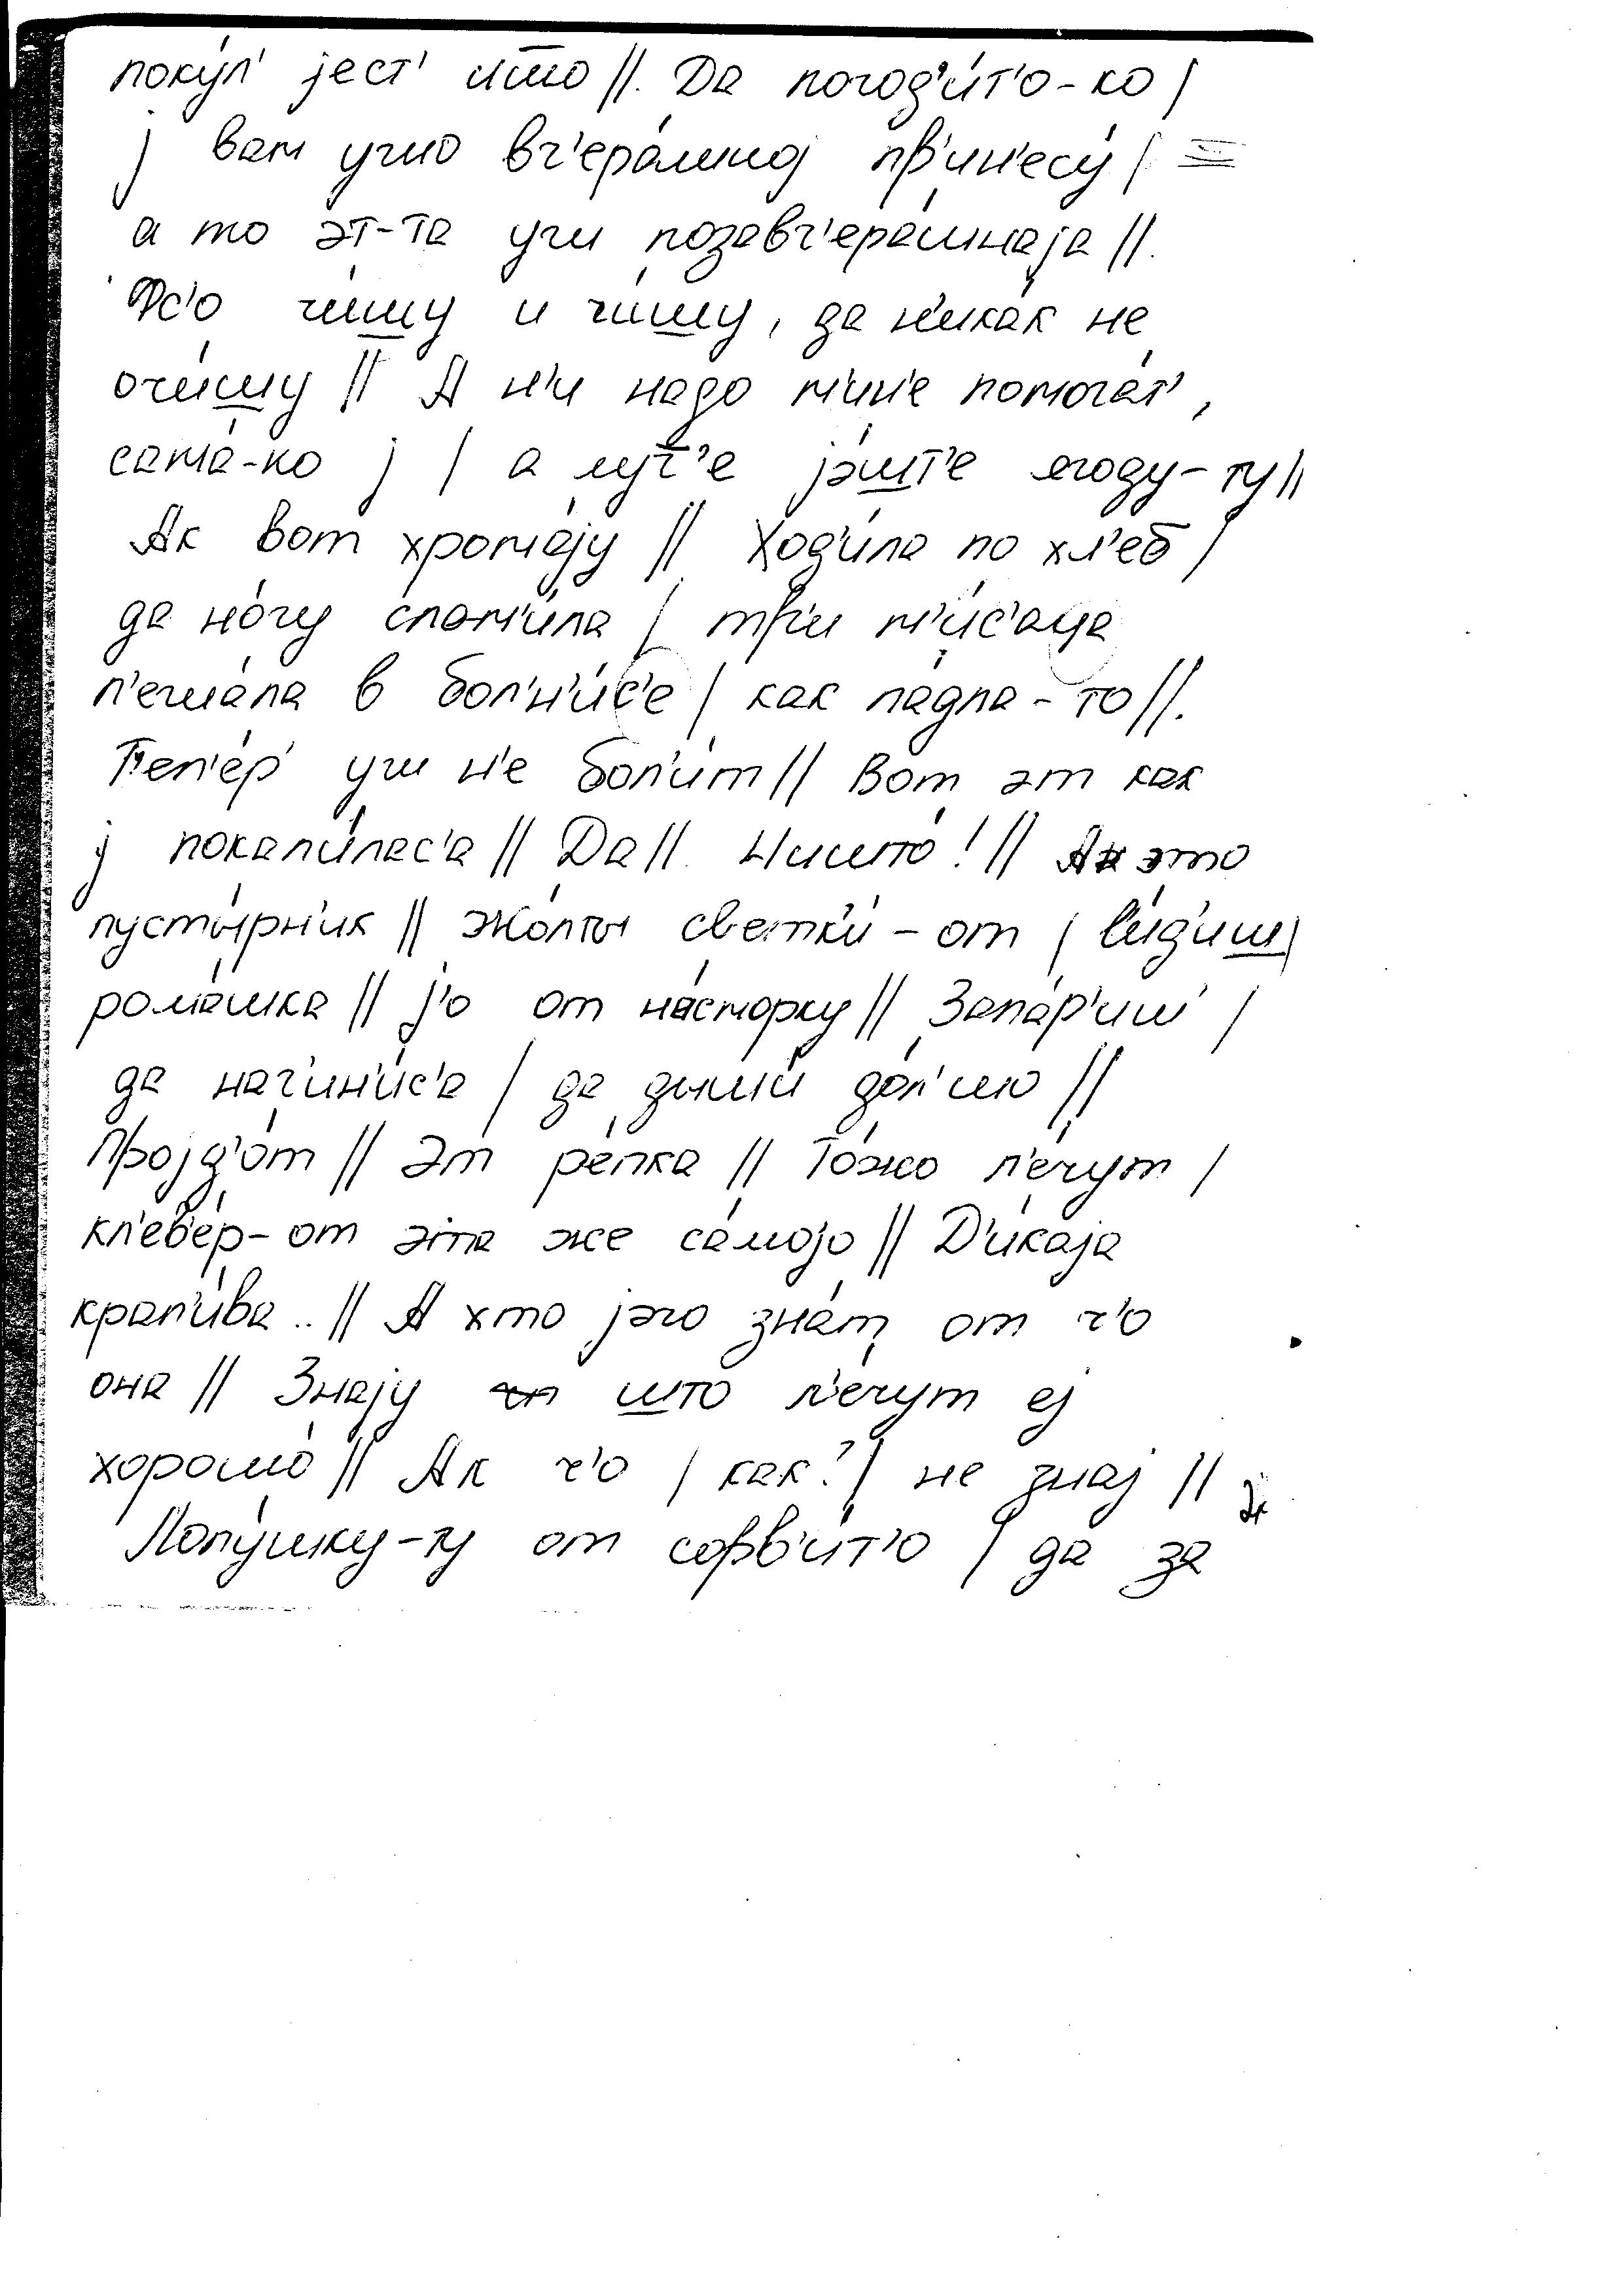 поку́л' јест' што //. Да погод'и́т'о-ко /
ј вам ушо вч'ера́шној пр'ин'есу́ /
а то эт-та уш позавч'ера́шнаја //.
Фс'о чи́шу и чи́шу, да н'ика́к не
очи́шу // А н'и надо м'ин'е помога́т',
сама́-ко ј / а луч'е јэшт'е ягоду-ту //
Ак вот хрома́ју // Ход'и́ла по хл'еб /
да но́гу слом'и́ла / тр'и м'и́с'аца
л'ежа́ла в бол'н'и́с'е / как падла-то //.
Т'еп'е́р' уш н'е бол'и́т // Вот эт как
ј покал'и́лас'а // Да //. Ништо́! // Ак это
пусты́рн'ик // Жо́лты светк'и́-от / ви́д'иш /
рома́шка // Ј'о от на́сморку // Запа́р'иш /
да наг'ин'и́с'а / да дыши́ до́л'шо //
Пројд'о́т // Эт ре́пка // То́жо л'е́чут /
кл'ев'е́р-от эта же са́мојо // Д'и́каја
крап'и́ва .. // А хто јэго зна́т, от ч'о
она // Знају што л'е́чут еј
хорошо́ // Ак ч'о / как? / не знај //
Лопу́шку-ту от сорв'и́т'о / да за